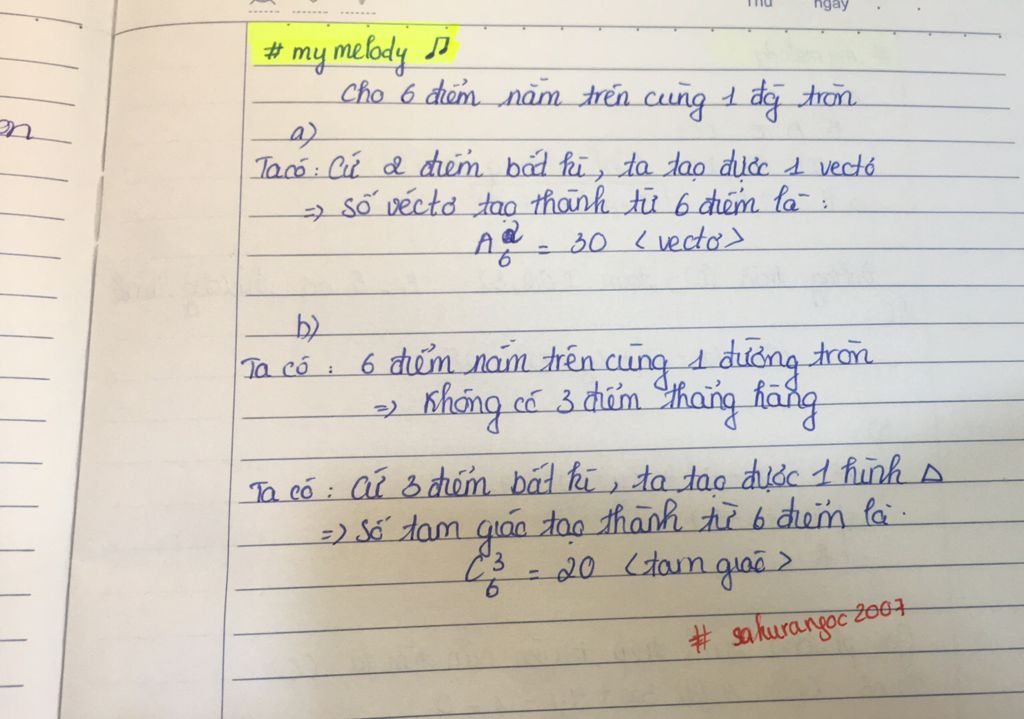 Thứ
ngày
en
# my melody ♫
Cho 6 điểm nằm trên cùng 1 đg̀ tròn
a)
Ta có : Cứ 2 điểm bất kì , ta tạo được 1 vectơ
=> Số véctơ tạo thành từ 6 điểm là :
A²₆ = 30 < vectơ >
b)
Ta có : 6 điểm nằm trên cùng 1 đường tròn
=> Không có 3 điểm thẳng hàng
Ta có : Cứ 3 điểm bất kì , ta tạo được 1 hình Δ
=> Số tam giác tạo thành từ 6 điểm là .
C³₆ = 20 < tam giác >
# sakurangoc2007